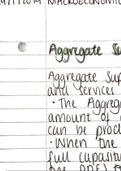 MACROECONOMIC
Aggregate Su
Aggregate Sup
and services
• The Aggreg
amount of
can be produc
• When the
full capasit